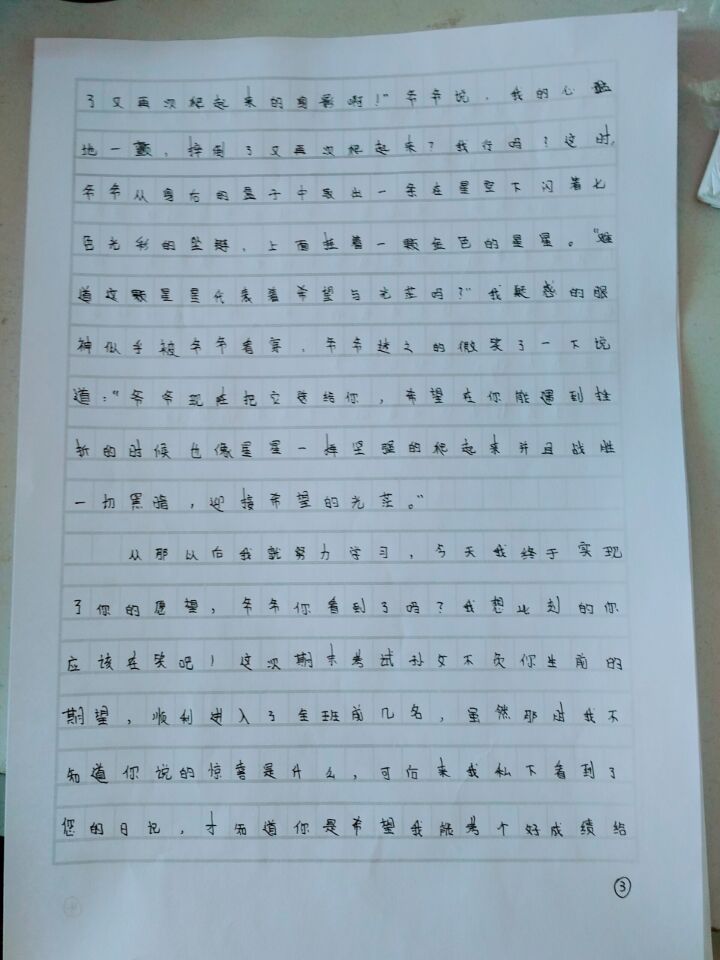 了又再次爬起来的身影啊！”爷爷说，我的心猛
地一颤，摔倒了又再次爬起来？我行吗？这时，
爷爷从身后的盒子中取出一条在星空下闪着七
色光彩的坠链，上面挂着一颗金色的星星。“难
道这颗星星代表着希望与光茫吗？”我疑惑的眼
神似乎被爷爷看穿，爷爷越之的微笑了一下说
道：“爷爷现在把它送给你，希望在你能遇到挫
折的时候也像星星一样坚强的爬起来并且战胜
一切黑暗，迎接希望的光茫。”
从那以后我就努力学习，今天我终于实现
了你的愿望，爷爷你看到了吗？我想此刻的你
应该在笑吧！这次期末考试孙女不负你生前的
期望，顺利进入了全班前几名，虽然那时我不
知道你说的惊喜是什么，可后来我私下看到了
您的日记，才知道你是希望我能考个好成绩给
3